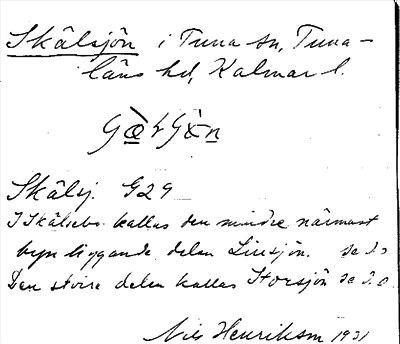 Skälsjön i Tuna sn, Tuna-
läns hd, Kalmar l.
Skälsj. G29
I Skälsebo kallas den mindre närmast
byn liggande delen Lissjön. se d.o
Den större delen kallas Storsjön se d.o.
Nils Henrikson 1931